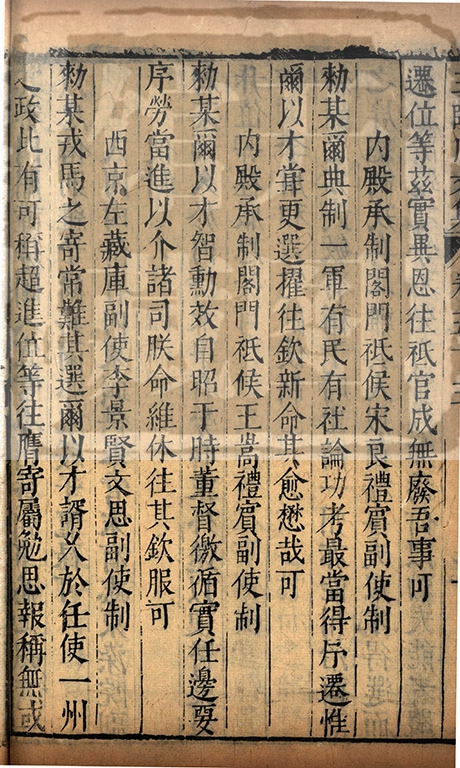 遷位等茲實異恩往祇官成無廢吾事可
内殿承制閤門祇候宋良禮賓副使制
勑某爾典制一軍有民有社論功考最當得斥遷惟
爾以才耸更選擢往欽新命其愈懋哉可
内殿承制閤門祇候王嵩禮賓副使制
勑某爾以才智勳效自昭于時董督徼循實任邊要
序勞當進以介諸司朕命維休往其欽服可
西京左藏庫副使李景賢文思副使制
勑某戎馬之寄常難其選爾以才諝乆於任使一州
之政比有可稱超進位等往膺寄屬勉思報稱無或